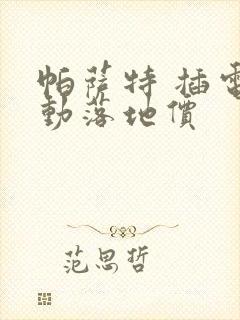 帕薩特 插電
動落地價
范思哲